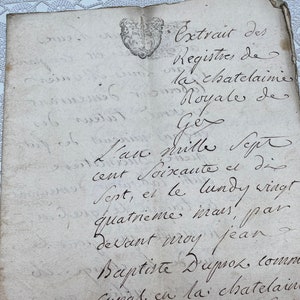 Extrait des
Registres de
la chatelainie
Royale de
Gex
L'an mille Sept
cent Soixante et dix
Sept, et le lundy vingt
quatrieme mars, par
devant moy jean
Baptiste Duproz comm
en la chatelaine